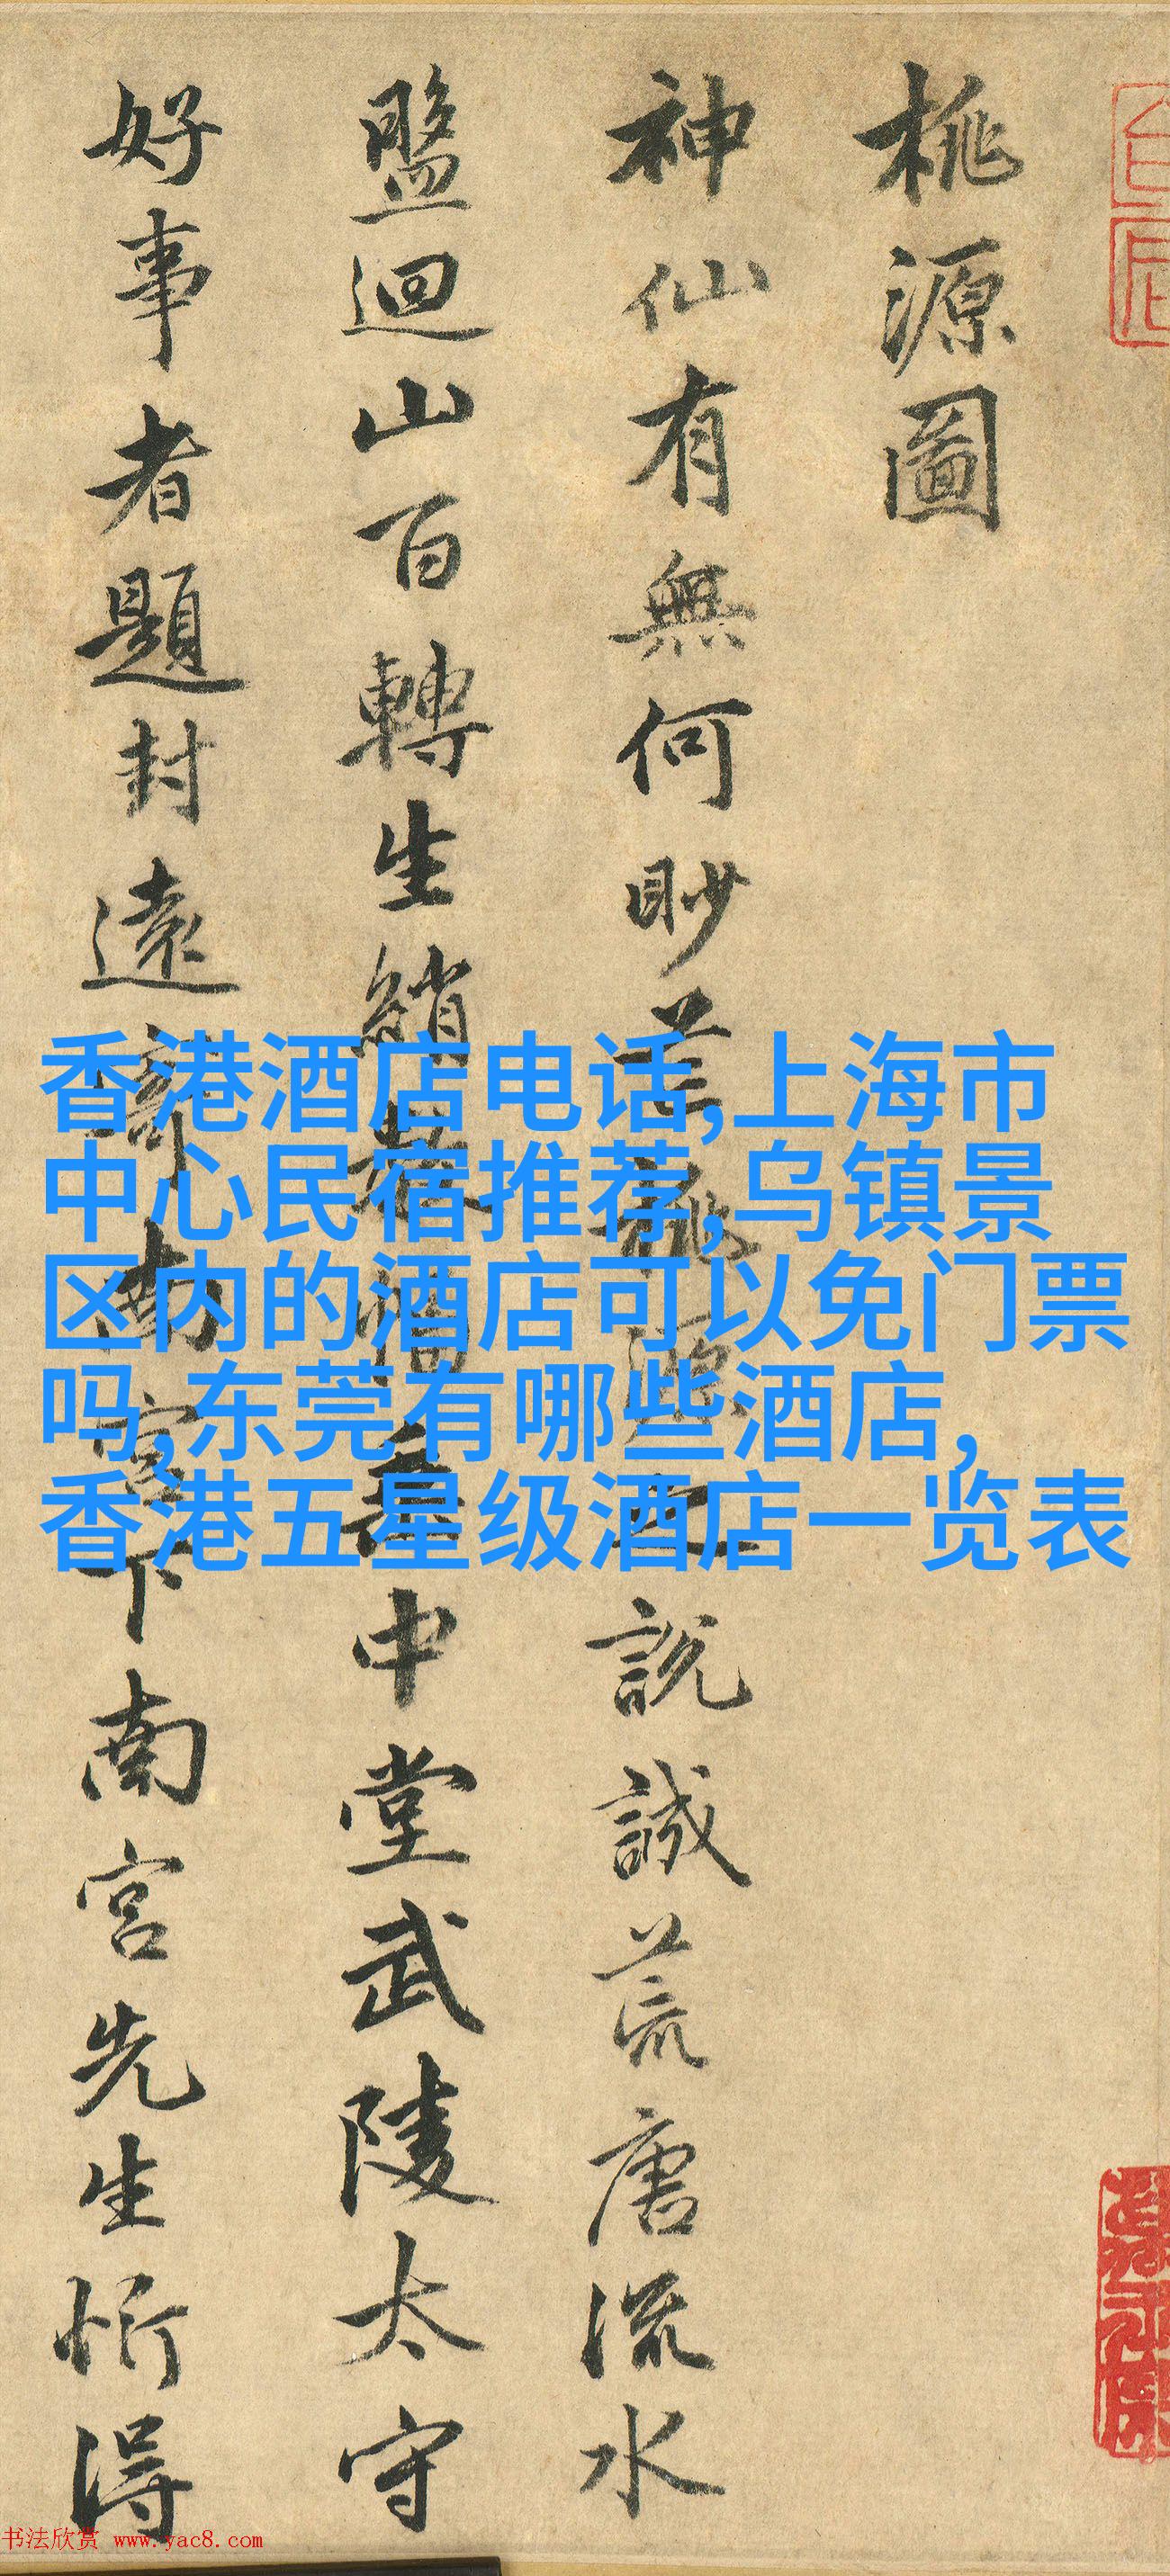 桃源圖
神仙有無何眇芒桃源之說誠荒唐流水
盤迴山百轉生綃數幅垂中堂武陵太守
好事者題封遠寄南宮下南宮先生忻得
香港酒店电话,上海市
中心民宿推荐,乌镇景
区内的酒店可以免门票
吗,东莞有哪些酒店,
香港五星级酒店一览表
书法欣赏 www.yac8.com